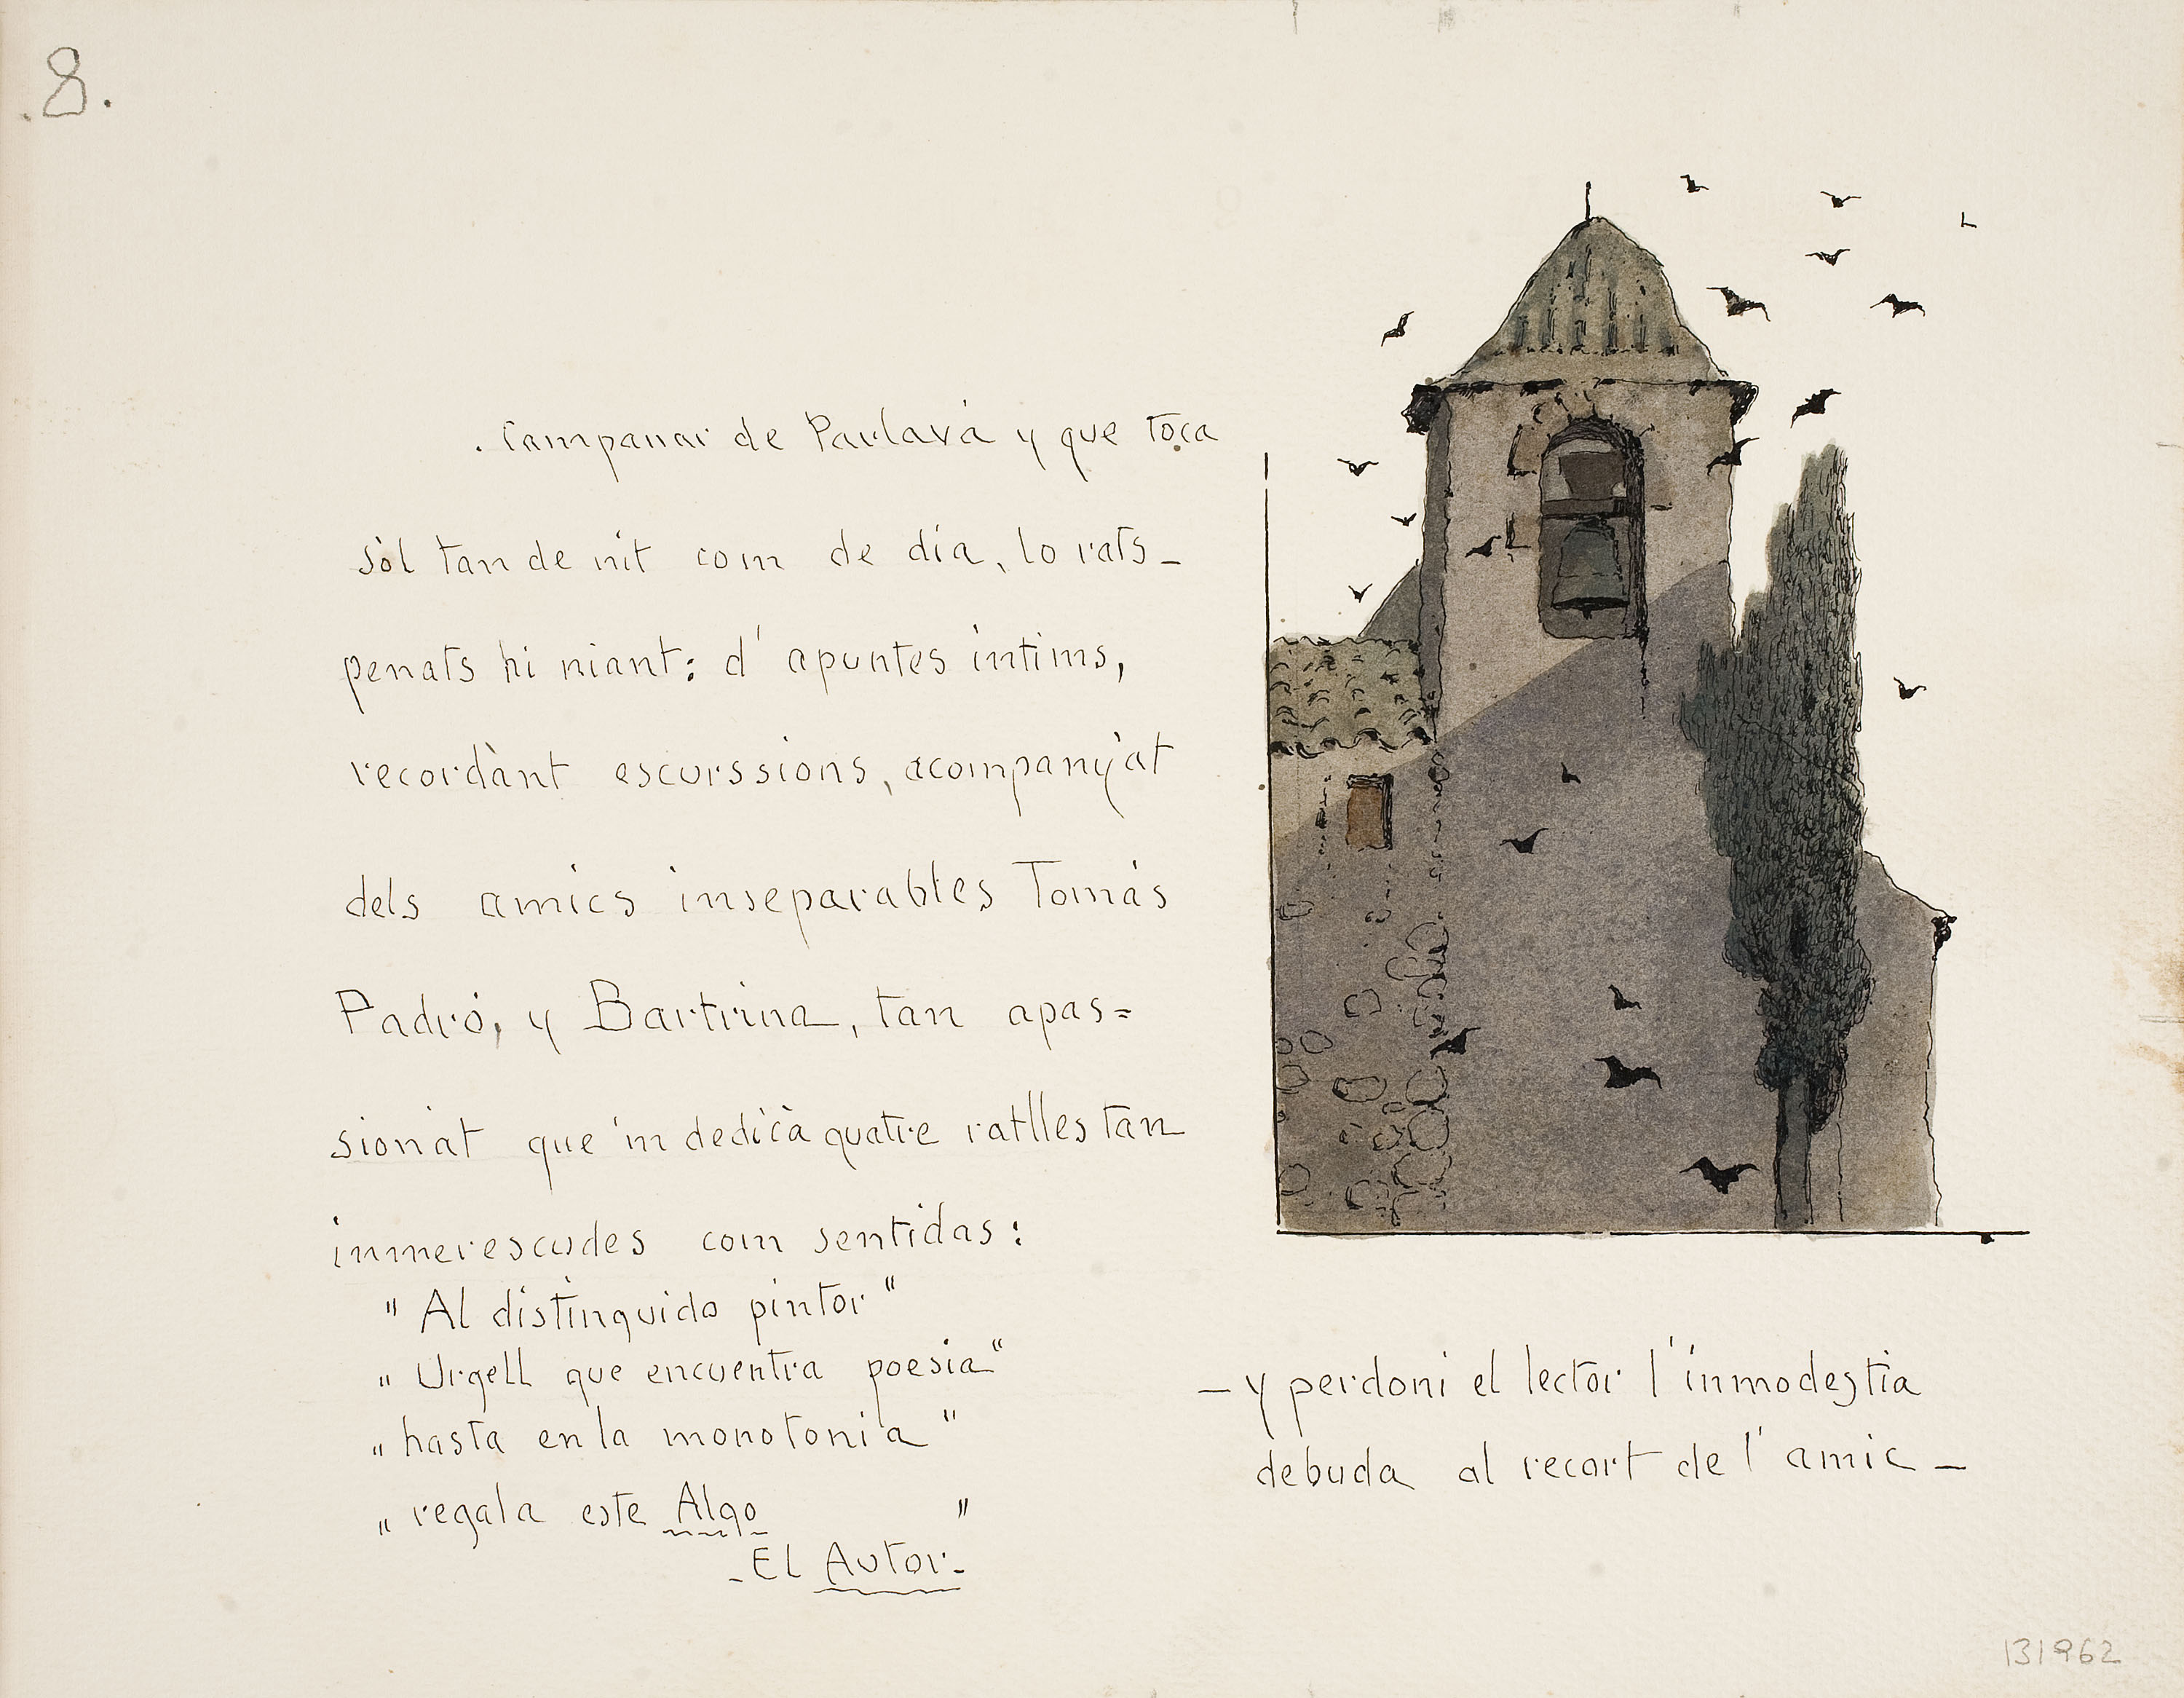 .8.
. Campanar de Parlavá y que toca
sól tan de nit com de dia, lo rats-
penats hi niant: d' apuntes intims,
recordànt escurssions, acompanyat
dels amics inseparables Tomás
Padró, y Bartrina, tan apas=
sionat que 'm dedicà quatre ratlles tan
inmerescudes com sentidas:
" Al distinguido pintor "
" Urgell que encuentra poesia "
" hasta en la monotonia "
" regala este Algo "
- El Autor -
- y perdoni el lector l' inmodestia
debuda al recort de l' amic -
131962